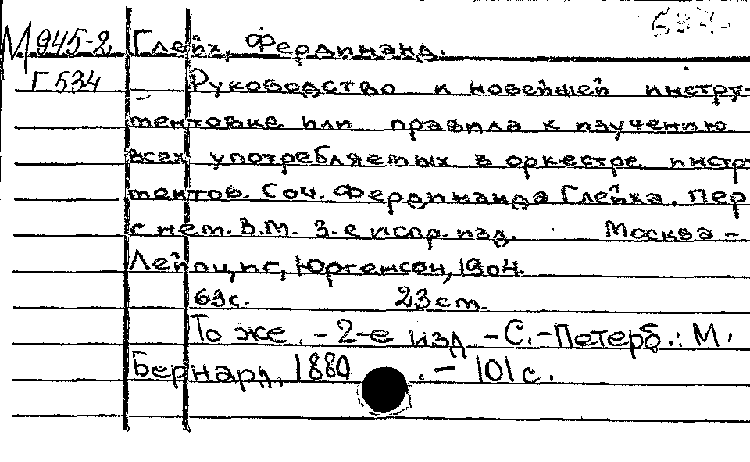 М945-2 Глейх, Фердинанд.
Г534 Руководство к новейшей инстру-
ментовке или правила к изучению
всех употребляемых в оркестре инстру
ментов. Соч. Фердинанда Глейха. Пер
с нем. В.М. 3-е испр. изд. Москва -
Лейпциг, Юргенсон, 1904.
63с. 23см.
То же. - 2-е изд. - С.-Петерб.: М.
Бернард, 1880. - 101с.